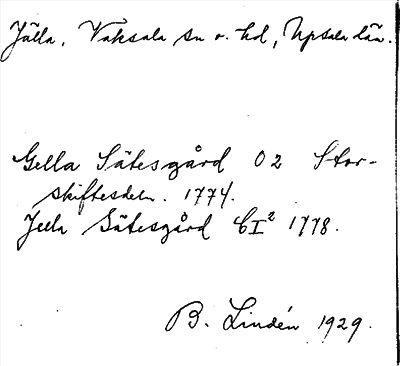 Jälla, Vaksala sn o. hd, Upsala län.
Gella Sätesgård O2 Stor-
skiftesdeln. 1774.
Jella Sätesgård CI² 1778.
B. Lindén 1929.